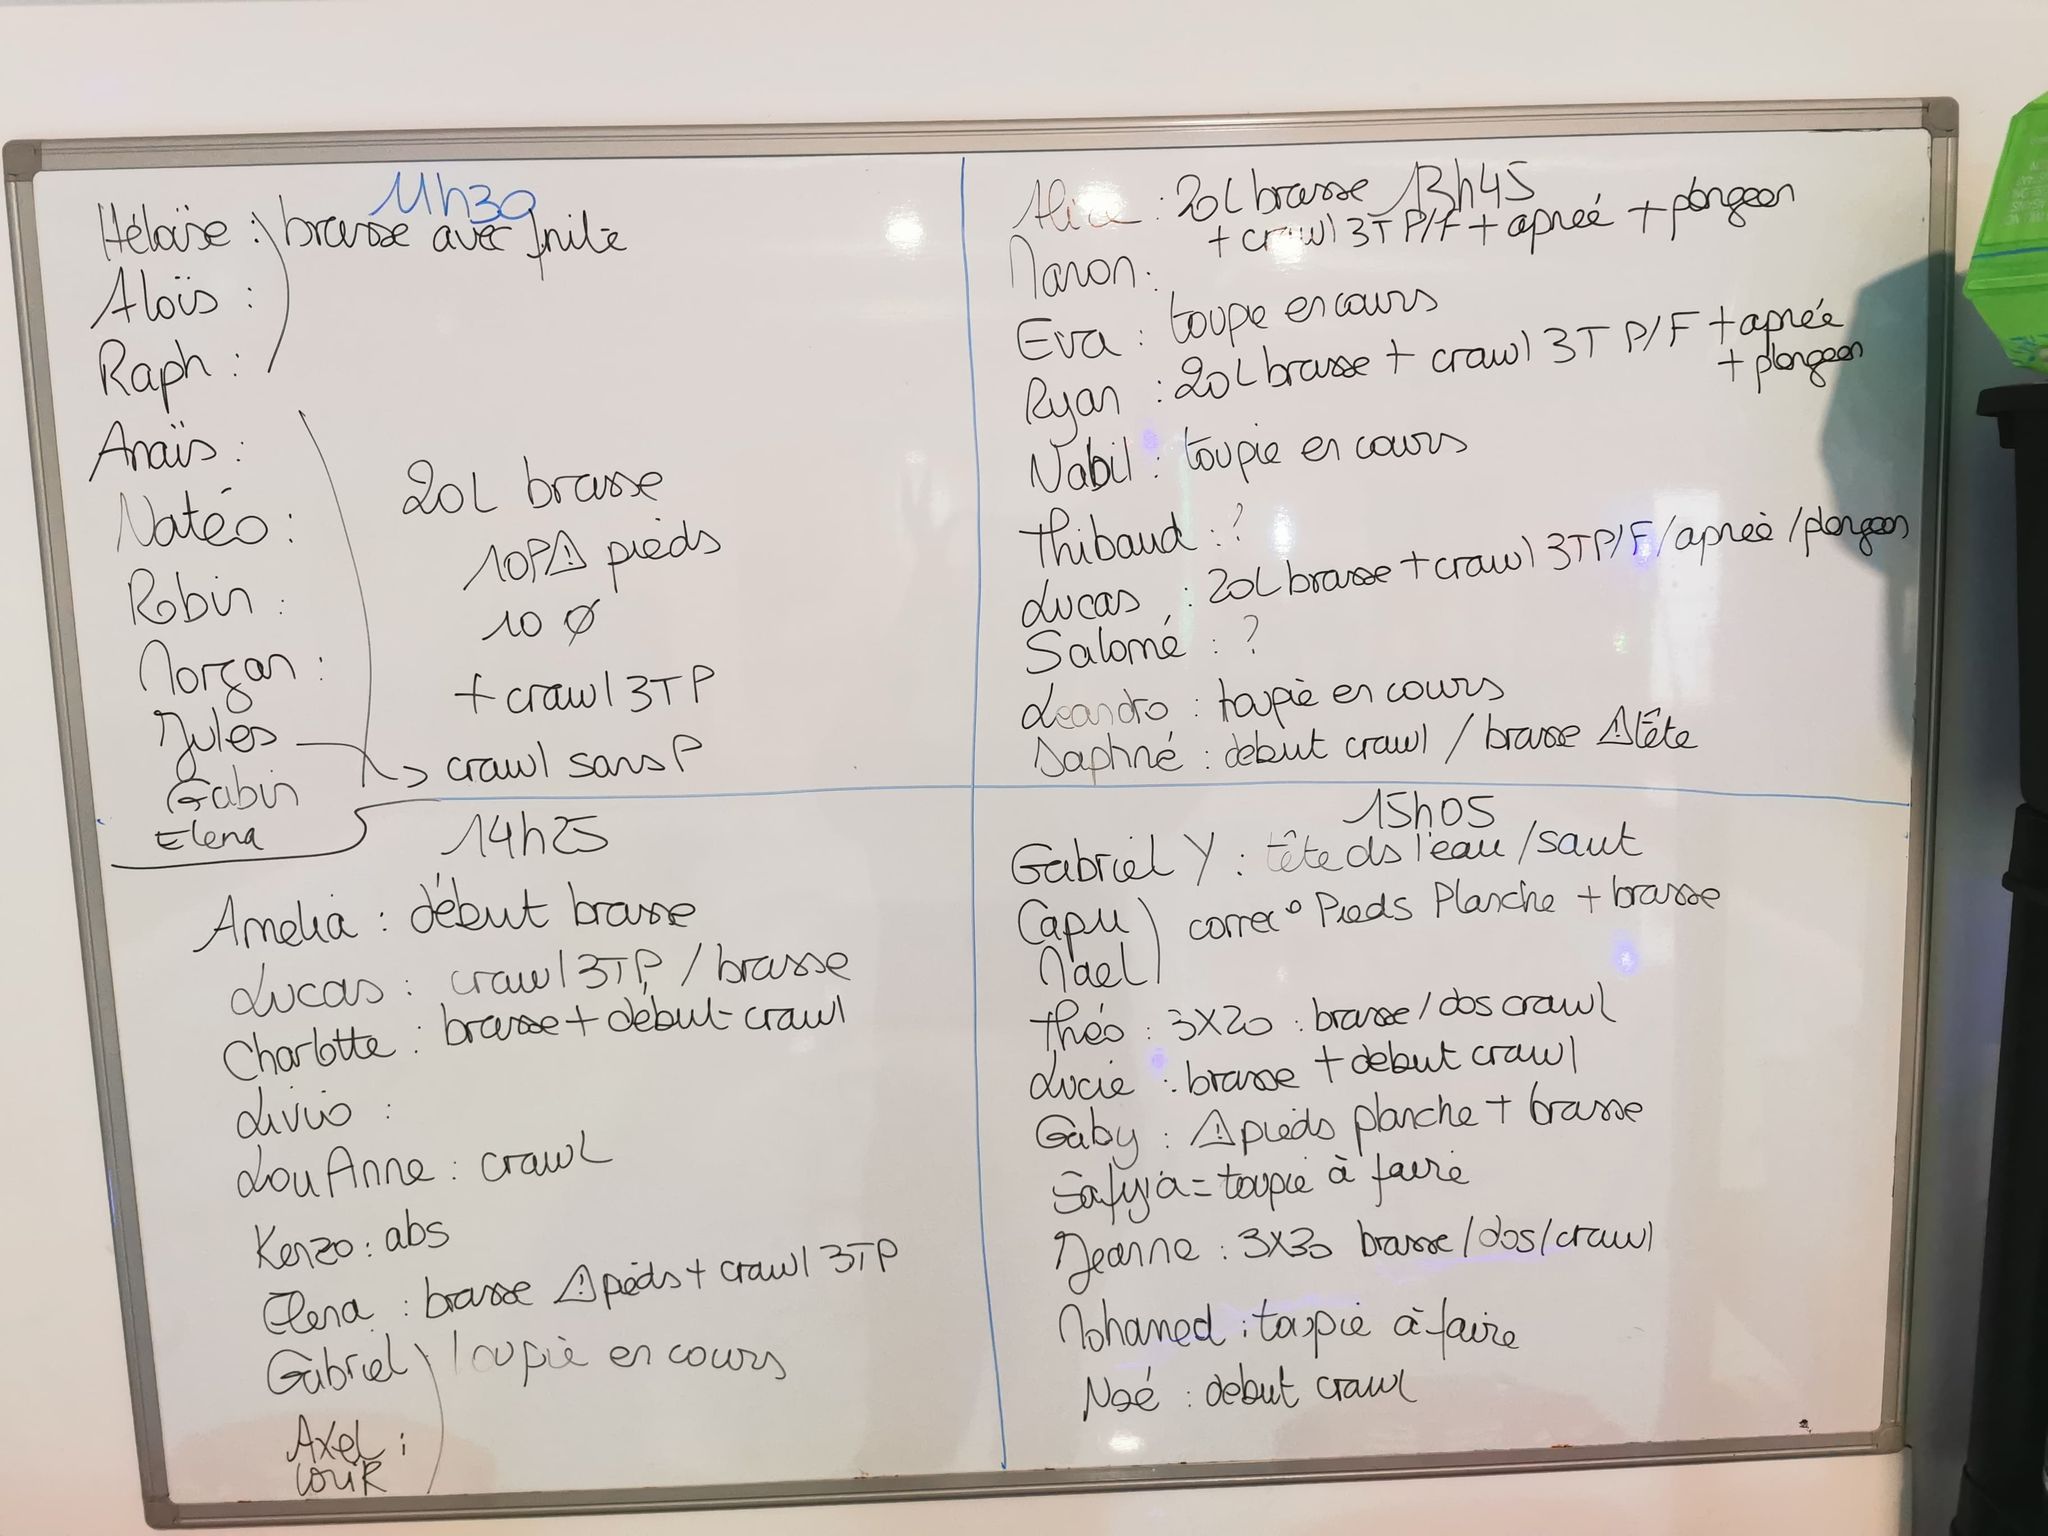 11h30
Héloïse : brasse avec frite
Aloïs :
Raph :
Anaïs :
Natéo :
Robin :
Morgan :
Jules
Gabin
Elena
20L brasse
10P⚠ pieds
10 Ø
+ crawl 3TP
crawl sans P
13h45
Alice : 20L brasse
+ crawl 3T P/F + apnée + plongeon
Manon :
Eva : toupie en cours
Ryan : 20L brasse + crawl 3T P/F + apnée
+ plongeon
Nabil : toupie en cours
Thibaud : ?
Lucas : 20L brasse + crawl 3TP/F/apnée/plongeon
Salomé : ?
Leandro : toupie en cours
Daphné : debut crawl / brasse ⚠ tête
14h25
Amelia : début brasse
Lucas : crawl 3TP / brasse
Charlotte : brasse + début crawl
Livio :
Lou Anne : crawl
Kenzo : abs
Elena : brasse ⚠ pieds + crawl 3TP
Gabriel toupie en cours
Axel :
15h05
Gabriel Y : tête ds l'eau / saut
Capu
Mael
correc° Pieds Planche + brasse
Théo : 3X20 : brasse / dos crawl
Lucie : brasse + debut crawl
Gaby : ⚠ pieds planche + brasse
Safyia = toupie à faire
Jeanne : 3X30 brasse / dos / crawl
Mohamed : toupie à faire
Noé : debut crawl